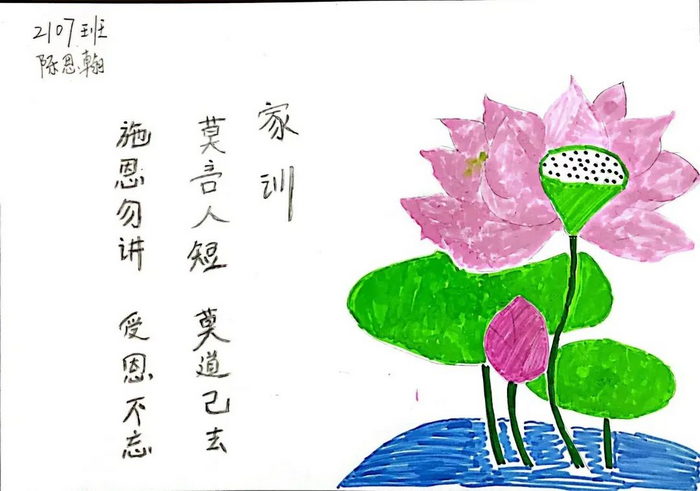 2107班
陈恩翰
家训
莫言人短 莫道己去
施恩勿讲 受恩不忘